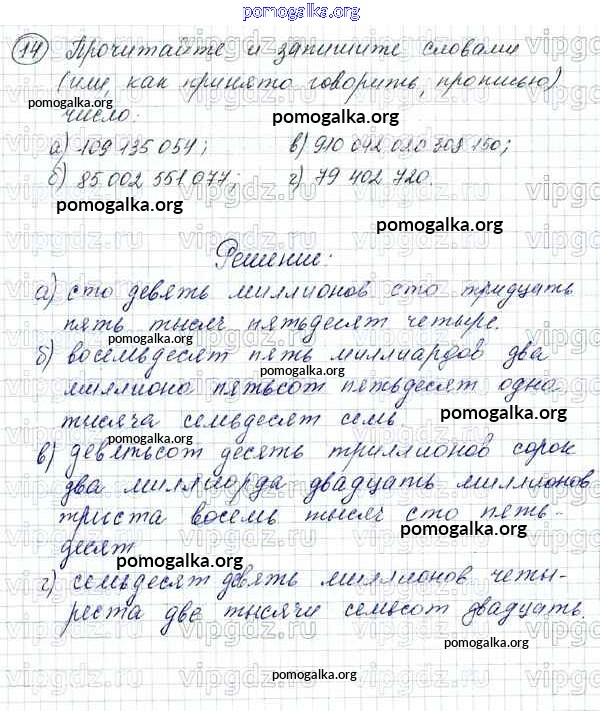 pomogalka.org
14 Прочитайте и запишите словами
(или, как принято говорить, прописью)
pomogalka.org
число:
pomogalka.org
а) 109 135 054; в) 910 042 020 308 150;
б) 85 002 551 077; г) 79 402 720.
pomogalka.org
pomogalka.org
vipgdz.ru
Решение:
а) сто девять миллионов сто тридцать
пять тысяч пятьдесят четыре.
pomogalka.org
б) восемьдесят пять миллиардов два
pomogalka.org
миллиона пятьсот пятьдесят одна
тысяча семьдесят семь.
pomogalka.org
pomogalka.org
в) девятьсот десять триллионов сорок
два миллиарда двадцать миллионов
триста восемь тысяч сто пять-
pomogalka.org
десят
pomogalka.org
г) семьдесят девять миллионов четы-
реста две тысячи семьсот двадцать.
pomogalka.org
pomogalka.org
vipgdz.ru